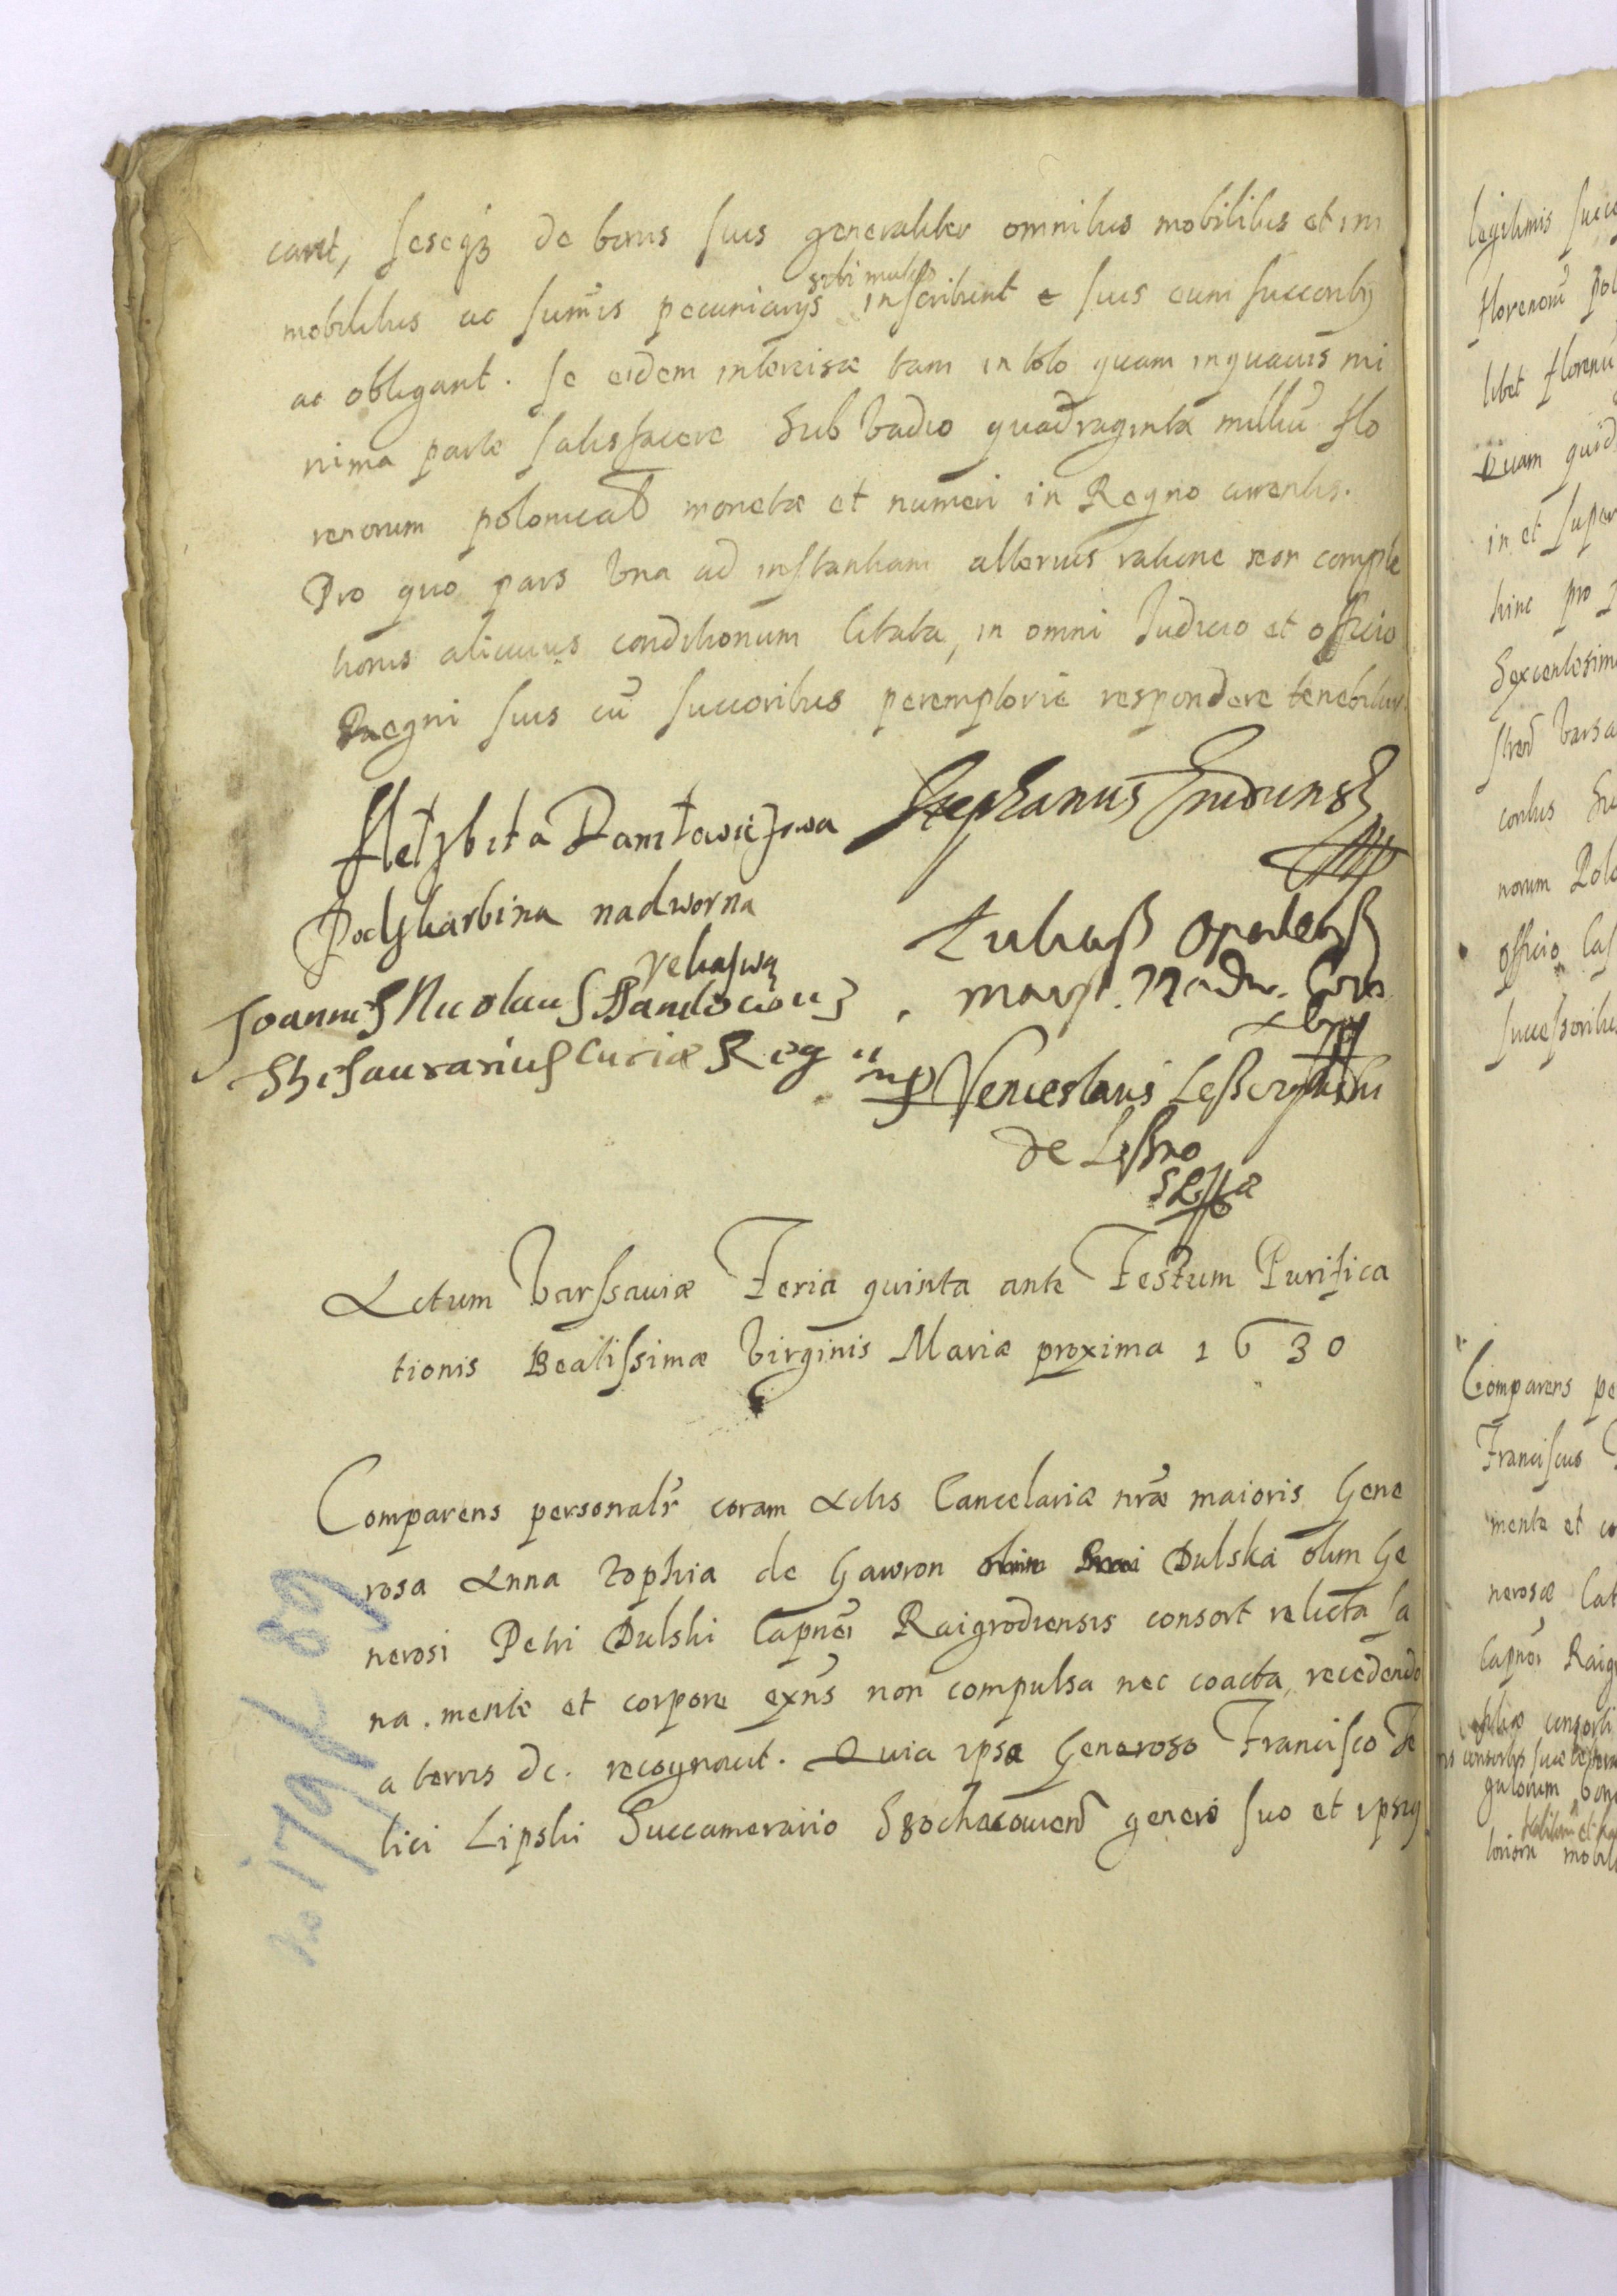 cant, seseq3 de bonis suis generaliter omnibus mobilibus et im
sibi mutuo
mobilibus ac summis pecuniarys inscribunt e suis cum succorib9
ac obligant. se eidem intercisæ tam in toto quam in quavis mi
nima parte satisfacere Sub Vadio quadraginta milliū flo
renorum polonical monetæ et numeri in Regno currentis.
Pro quo pars Vna ad instantiam alterius ratione non comple
tionis alicuius conditionum Citata, in omni Judicio et officio
Regni suis cū succoribus peremptorie respondere tenebitur.
Helzbita Daniłowiczowa
Stephanus
Podskarbina nadworna
ręką swą
Łukasz Opaleński
Joannes Nicolaus Danilowicz
Marsz. Nadw. Coro.
Thesaurarius Curiæ Reg
mp
Venceslaus Leszczynski
de Leszno
Actum Varssaviæ Feria quinta ante Festum Purifica
tionis Beatissimæ Virginis Mariæ proxima 1630
Comparens personalr coram Actis Cancelariæ nræ maioris Gene
rosa Anna Zophia de Gawron Dulska olim Ge
nerosi Petri Dulski Capnei Raigrodiensis consort relicta sa
na. mente et corpore exns non compulsa nec coacta, recedendo
a terris &c. recognovit. Quia ipsa Generoso Francisco Fe
lici Lipski Succamerario Sochacovien genero suo et ipsi9
No 179 k 89
legitimis
florenorū
libet florenū
Quam quid
in et super
hinc pro
Sexcentesim
norum Polo
officio Cas
successoribus
Comparens pe
Franciscus
mente et co
nerosæ Cat
Capnei Raig